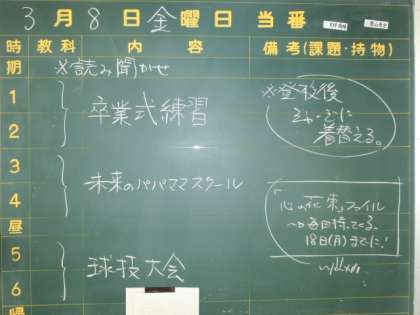 3月8日金曜日当番
時期 教科 内容 備考(課題・持物)
※読み聞かせ
1
2
卒業式練習
※登校後
着替える。
3
4
未来のパパママスクール
ファイル
毎日持ってくる。
18日(月)までに!
昼
5
6
球技大会